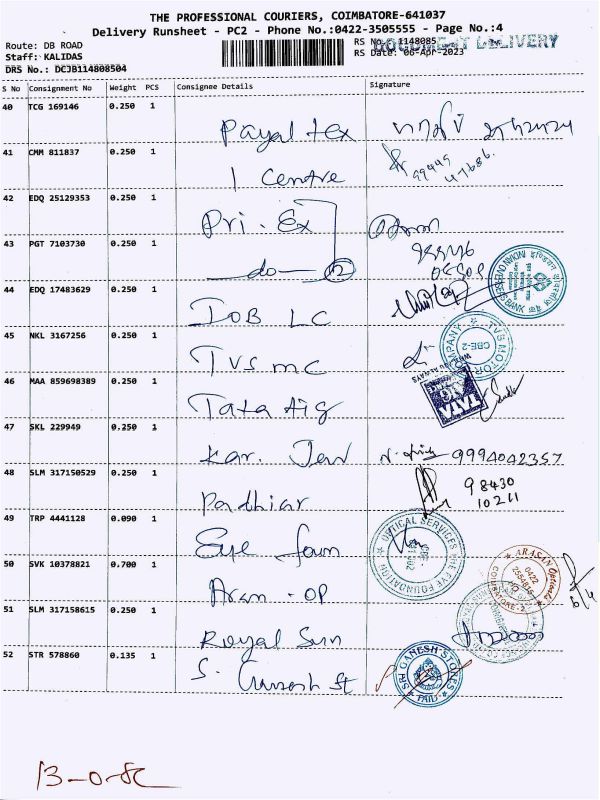 THE PROFESSIONAL COURIERS, COIMBATORE-641037
Delivery Runsheet - PC2 - Phone No.:0422-3505555 - Page No.:4
Route: DB ROAD
Staff: KALIDAS
DRS No.: DCJB114808504
RS No.: 1148085
RS Date: 06-Apr-2023
DOCUMENT DELIVERY
S No Consignment No Weight PCS Consignee Details Signature
40 TCG 169146 0.250 1 Payal tex
41 CMM 811837 0.250 1 1 Centre
42 EDQ 25129353 0.250 1 Pri. Ex
43 PGT 7103730 0.250 1 do 2
44 EDQ 17483629 0.250 1 IOB LC
45 NKL 3167256 0.250 1 TVS mc
TVS MOTOR COMPANY CBE-2
46 MAA 859698389 0.250 1 Tata Aig
47 SKL 229949 0.250 1 Kar. 9994042357
48 SLM 317150529 0.250 1 Padhiar 98430
10211
49 TRP 4441128 0.090 1 Eye foun
OPTICAL SERVICES THE EYE FOUNDATION
50 SVK 10378821 0.700 1 Aran - OP
ARASAN
51 SLM 317158615 0.250 1 Royal Sun
52 STR 578860 0.135 1 S. Ganesh St
SRI GANESH STORES
PAID
13-0-8C